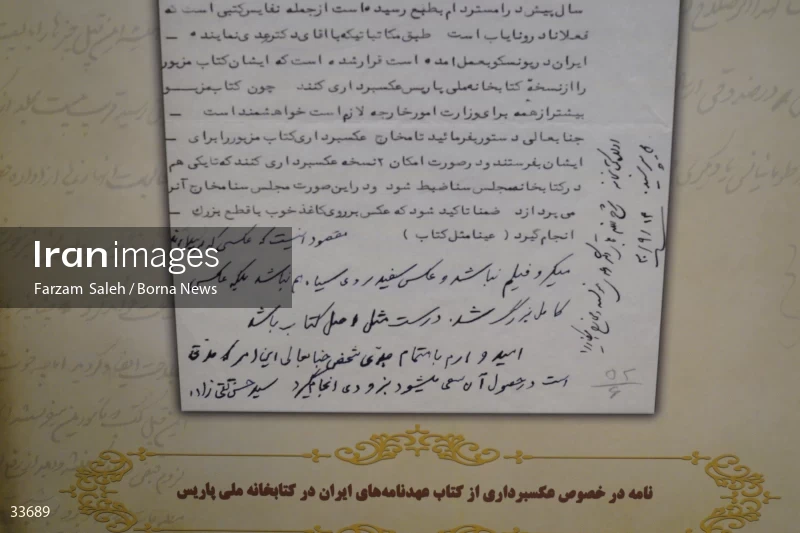 سال پیش در امستردام بطبع رسیده است ازجمله نفایس کتبی است که
فعلا نادرونایاب است طبق مکاتباتیکه با آقای دکتر عدی نماینده
ایران در یونسکو بعمل آمده است قرار شده است که ایشان کتاب مزبور
را از نسخهٔ کتابخانه ملی پاریس عکسبرداری کنند چون کتاب مزبور
بیشتر از همه برای وزارت امور خارجه لازم است خواهشمند است
جنابعالی دستور بفرمائید تا مخارج عکسبرداری کتاب مزبور را برای
ایشان بفرستند و در صورت امکان ۲ نسخه عکسبرداری کنند که تا یکی هم
در کتابخانه مجلس سنا ضبط شود و در این صورت مجلس سنا مخارج آنرا
می پردازد ضمنا تاکید شود که عکس بر روی کاغذ خوب با قطع بزرگ
انجام گیرد ( عینا مثل کتاب ) مقصود اینست که عکس
میکروفیلم نباشد و عکس سفید روی سیاه هم نباشد بلکه عکس
کامل بزرگ شده درست مثل اصل کتاب باشد
امید وارم با اهتمام جدّی شخص جنابعالی این امر که مدتها
است در حصول آن سعی میشود بزودی انجام گیرد سید حسن تقی زاده
Iranimages
Farzam Saleh / Borna News
نامه در خصوص عکسبرداری از کتاب عهدنامه‌های ایران در کتابخانه ملی پاریس
33689